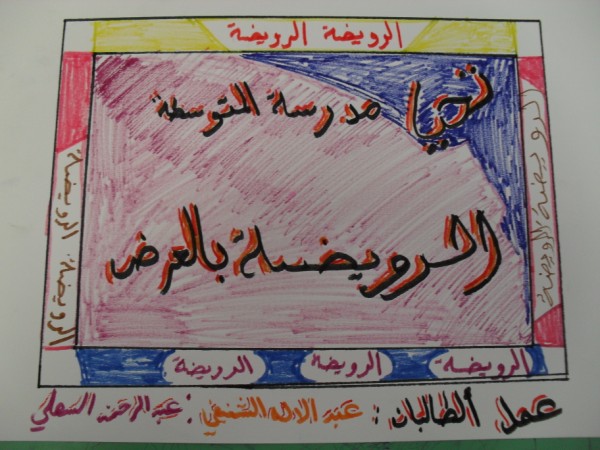 الرويضة الرويضة
تحيا مدرسة المتوسطة
الرويضة بالعرض
الرويضة الرويضة
الرويضة الرويضة
الرويضة الرويضة الرويضة
عمل ألطالبان : عبد الاله الشنيفي : عبد الرحمن السهلي